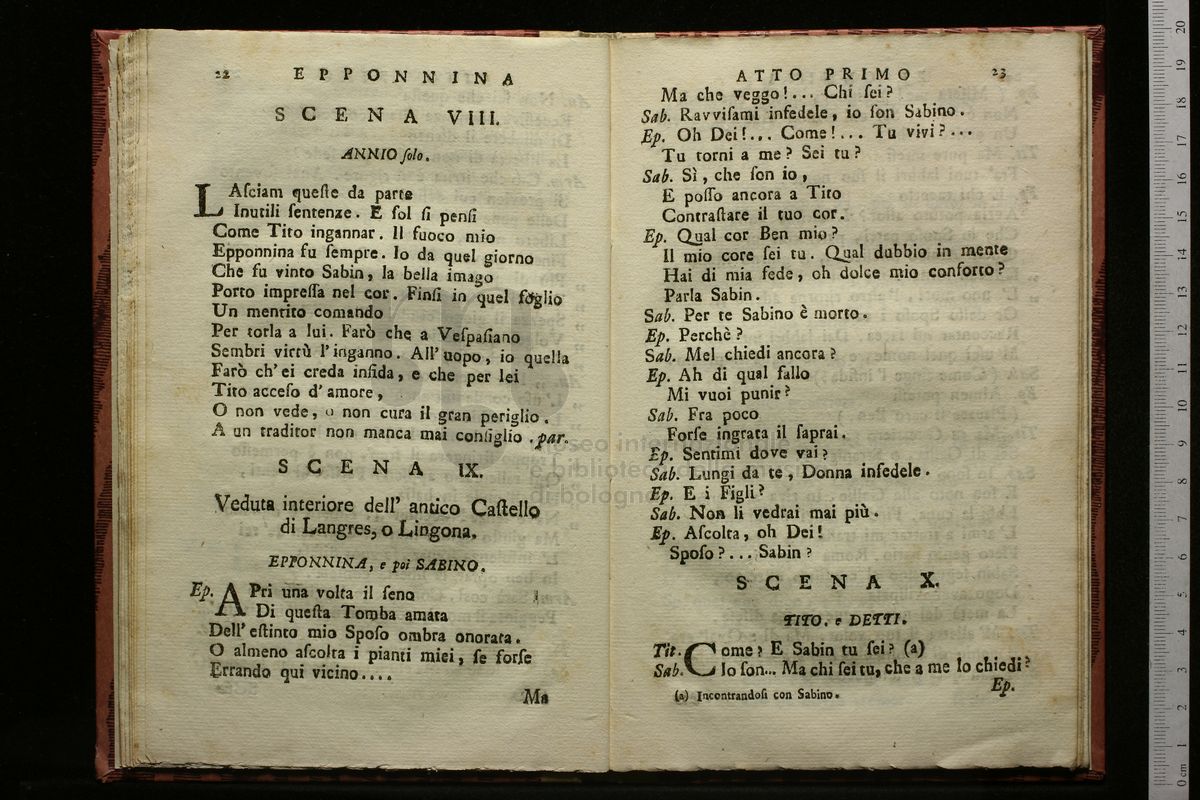 22 EPPONNINA
SCENA VIII.
ANNIO solo.
LAsciam queste da parte
Inutili sentenze. E sol si pensi
Come Tito ingannar. Il fuoco mio
Epponnina fu sempre. Io da quel giorno
Che fu vinto Sabin, la bella imago
Porto impressa nel cor. Finsi in quel foglio
Un mentito comando
Per torla a lui. Farò che a Vespasiano
Sembri virtù l'inganno. All'uopo, io quella
Farò ch'ei creda infida, e che per lei
Tito acceso d'amore,
O non vede, o non cura il gran periglio.
A un traditor non manca mai consiglio. par.
SCENA IX.
Veduta interiore dell' antico Castello
di Langres, o Lingona.
EPPONNINA, e poi SABINO.
Ep. APri una volta il seno
Di questa Tomba amata
Dell'estinto mio Sposo ombra onorata.
O almeno ascolta i pianti miei, se forse
Errando qui vicino....
Ma
ATTO PRIMO 23
Ma che veggo!... Chi sei?
Sab. Ravvisami infedele, io son Sabino.
Ep. Oh Dei!... Come!... Tu vivi?...
Tu torni a me? Sei tu?
Sab. Sì, che son io,
E posso ancora a Tito
Contrastare il tuo cor.
Ep. Qual cor Ben mio?
Il mio core sei tu. Qual dubbio in mente
Hai di mia fede, oh dolce mio conforto?
Parla Sabin.
Sab. Per te Sabino è morto.
Ep. Perchè?
Sab. Mel chiedi ancora?
Ep. Ah di qual fallo
Mi vuoi punir?
Sab. Fra poco
Forse ingrata il saprai.
Ep. Sentimi dove vai?
Sab. Lungi da te, Donna infedele.
Ep. E i Figli?
Sab. Non li vedrai mai più.
Ep. Ascolta, oh Dei!
Sposo?... Sabin?
SCENA X.
TITO. e DETTI.
Tit. Come? E Sabin tu sei? (a)
Sab. Io son... Ma chi sei tu, che a me lo chiedi?
Ep.
(a) Incontrandosi con Sabino.